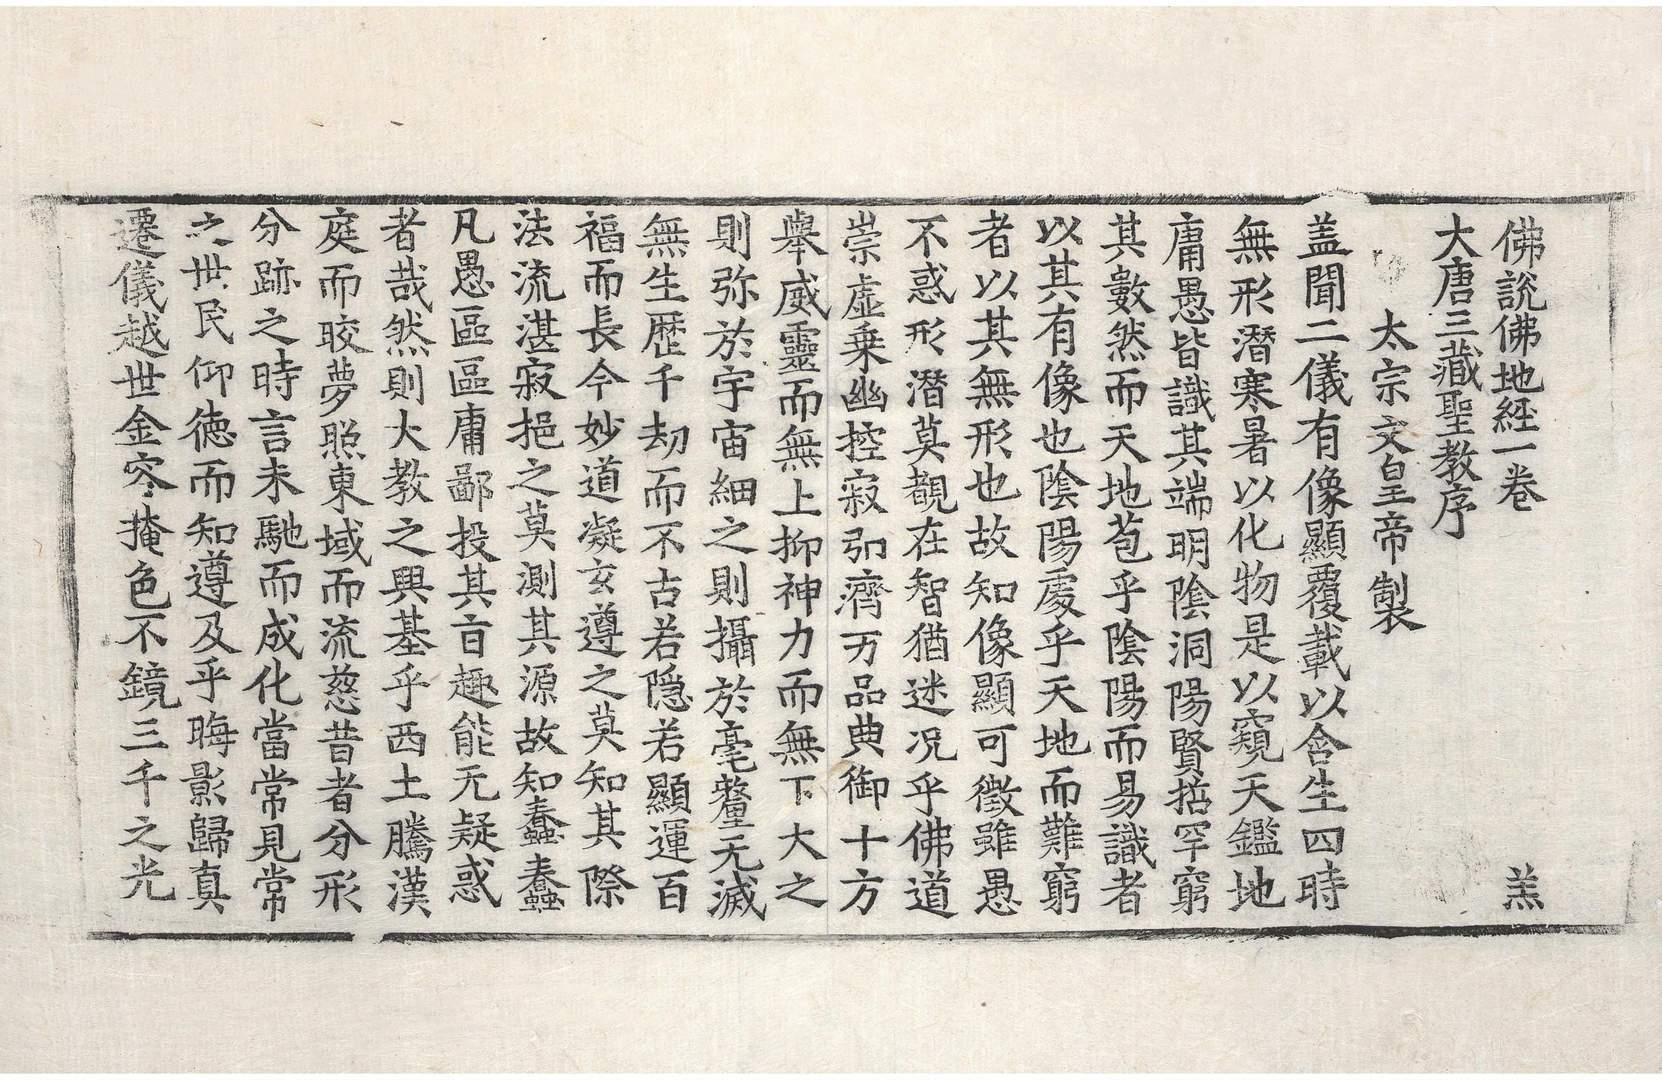 佛說佛地經一卷 羔
大唐三藏聖教序
太宗文皇帝製
盖聞二儀有像顯覆載以含生四時
無形潛寒暑以化物是以窺天鑑地
庸愚皆識其端明陰洞陽賢哲罕窮
其數然而天地苞乎陰陽而易識者
以其有像也陰陽處乎天地而難窮
者以其無形也故知像顯可徵雖愚
不惑形潛莫覩在智猶迷况乎佛道
崇虛乗幽控寂弘濟万品典御十方
舉威靈而無上抑神力而無下大之
則弥於宇宙細之則攝於毫釐无滅
無生歷千劫而不古若隱若顯運百
福而長今妙道凝玄遵之莫知其際
法流湛寂挹之莫測其源故知蠢蠢
凡愚區區庸鄙投其旨趣能无疑惑
者哉然則大教之興基乎西土騰漢
庭而皎夢照東域而流慈昔者分形
分跡之時言未馳而成化當常見常
之世民仰德而知遵及乎晦影歸真
遷儀越世金容掩色不鏡三千之光